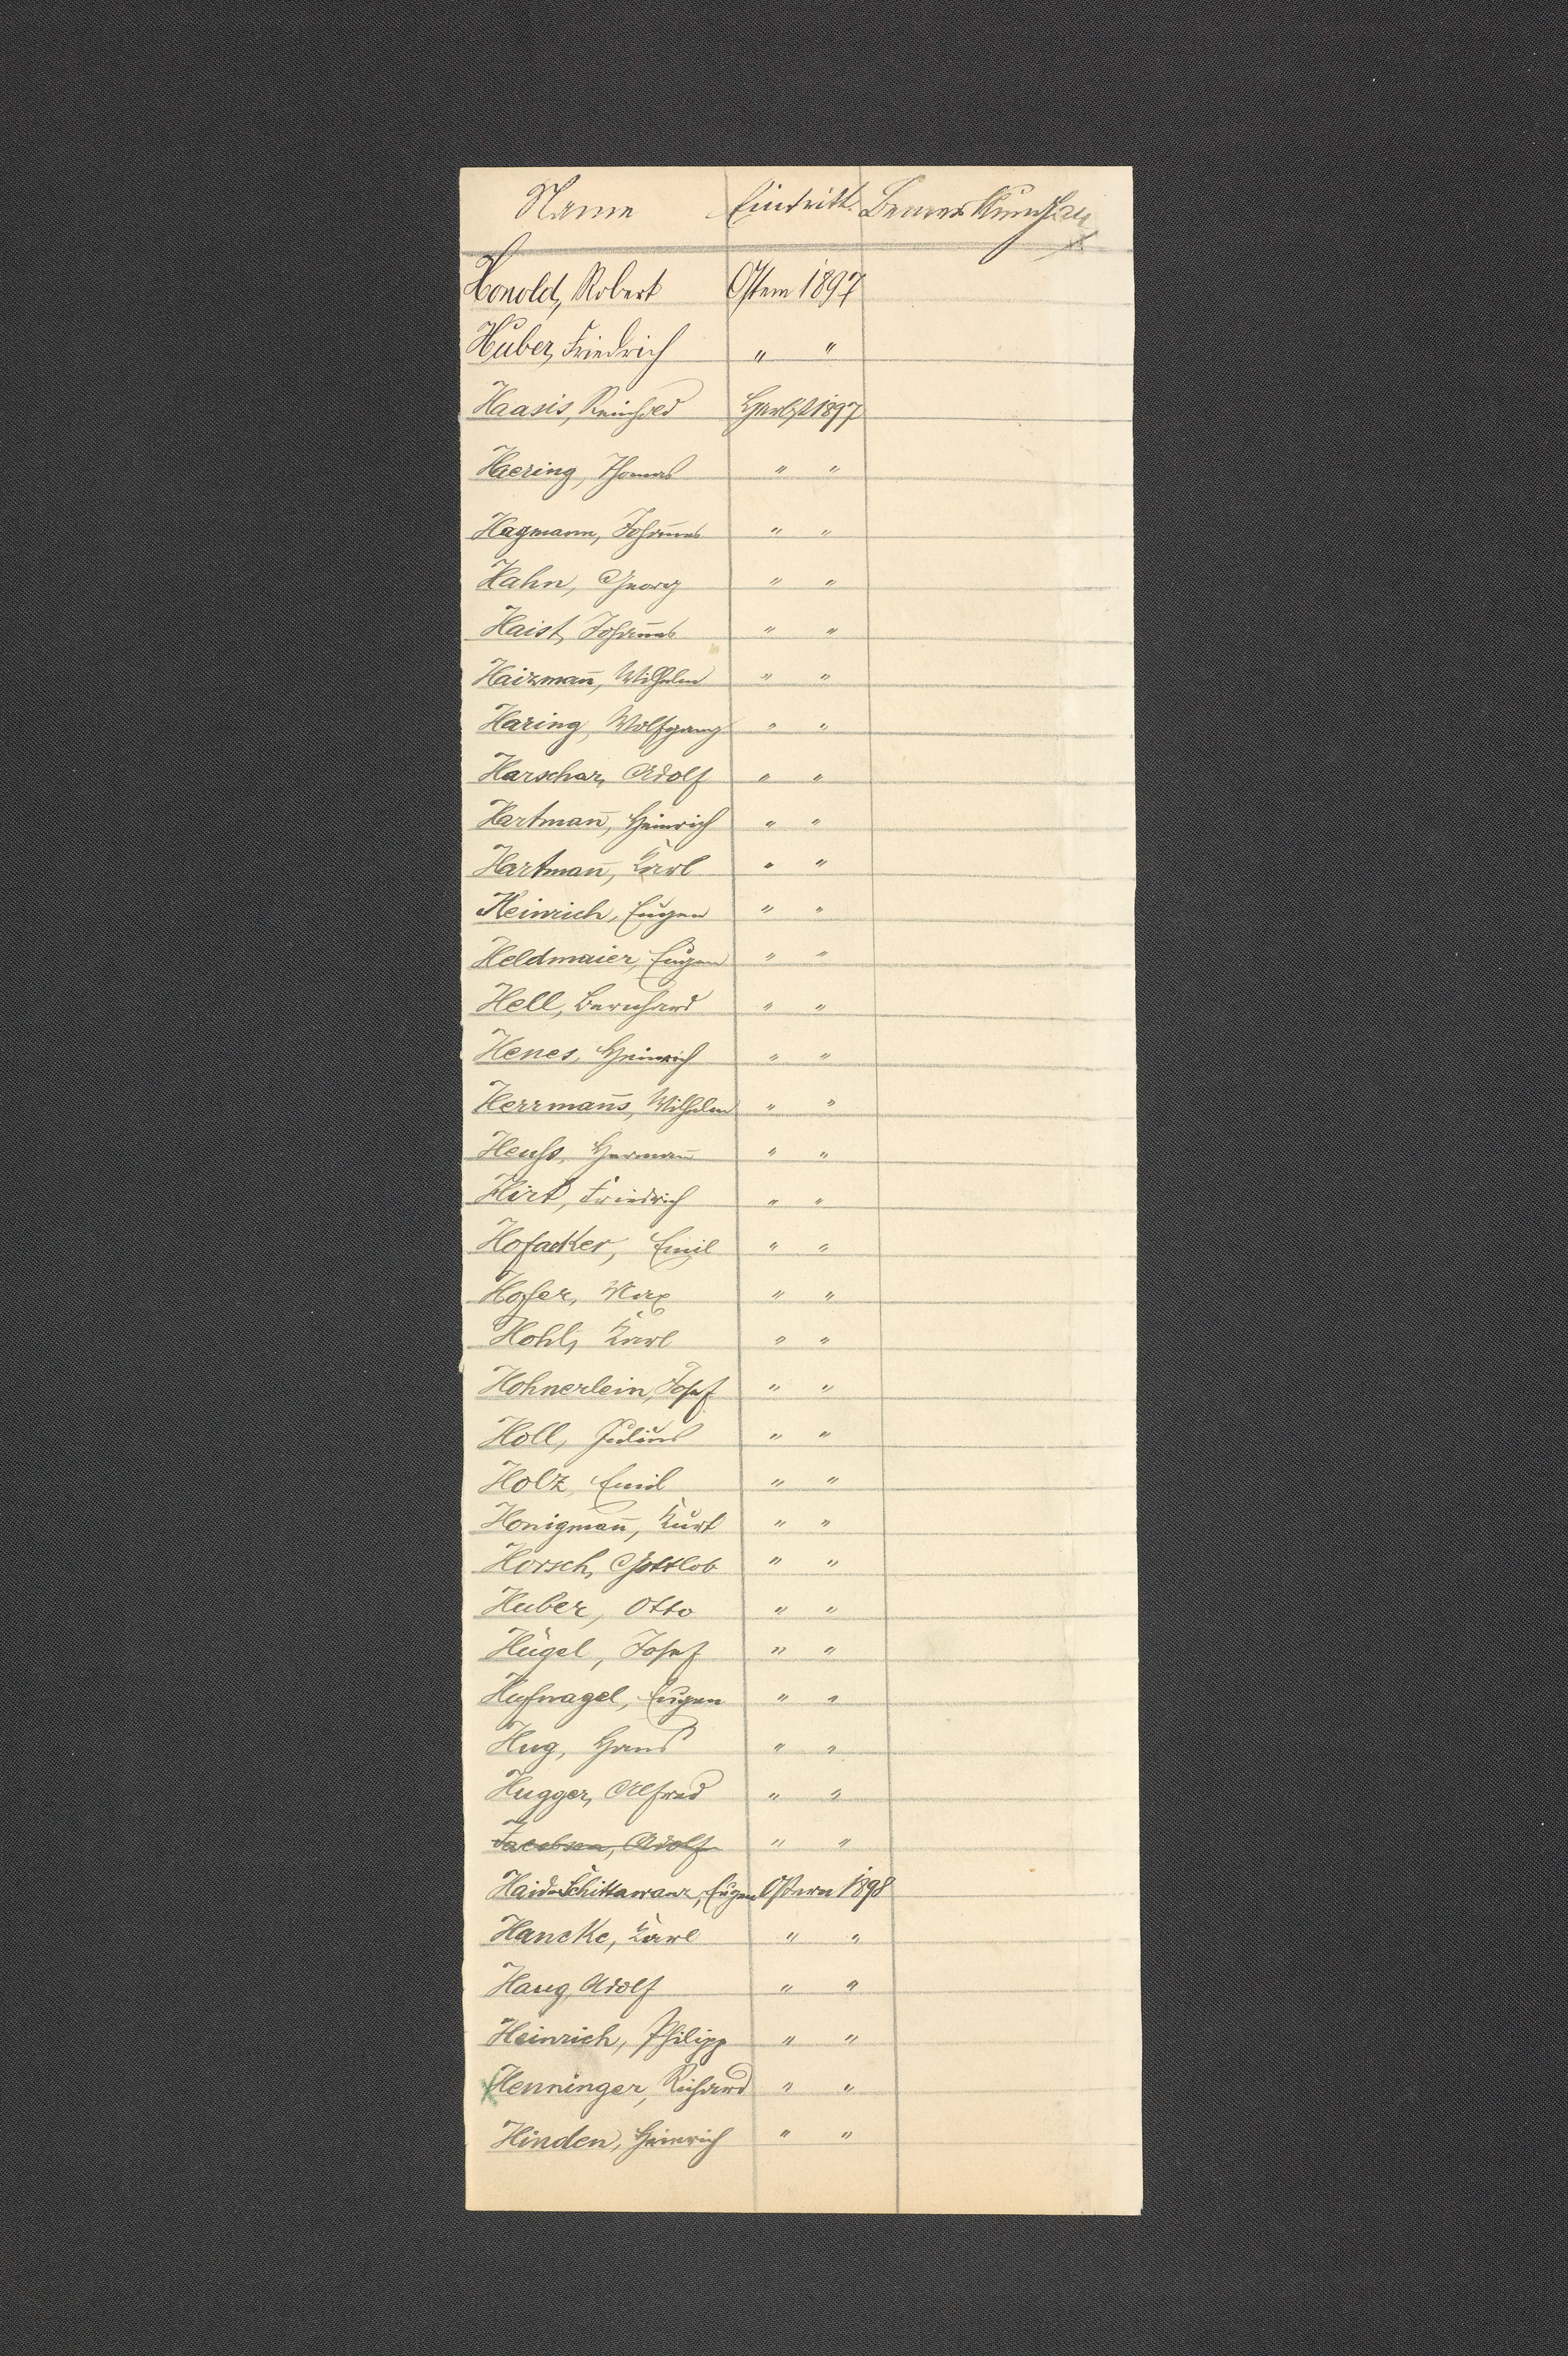 Name Eintritt. Bemerkungen
Honold, Robert Ostern 1897
Huber, Friedrich " "
Haasis, Reinhold Herbst 1897
Haering, Thomas " "
Hagmann, Johannes " "
Hahn, Georg " "
Haist, Johannes " "
Haizmann̄, Wilhelm " "
Haring, Wolfgang " "
Harschar, Adolf " "
Hartman̄, Heinrich " "
Hartman̄, Karl " "
Heinrich, Eugen " "
Heldmaier, Eugen " "
Hell, Bernhard " "
Henes, Heinrich " "
Herrman̄s, Wilhelm " "
Heuß, Herman̄ " "
Hirt, Friedrich " "
Hofacker, Emil " "
Hofer, Max " "
Hohl, Karl " "
Hohnerlein, Josef " "
Holl, Julius " "
Holz, Emil " "
Honigman̄, Kurt " "
Horsch, Gottlob " "
Huber, Otto " "
Hügel, Josef " "
Hufnagel, Eugen " "
Hug, Hans " "
Hugger, Alfred " "
Jacobsen, Adolf " "
Eugen Ostern 1898
Hancke, Karl " "
Haug, Adolf " "
Heinrich, Philipp " "
Henninger, Richard " "
Hinden, Heinrich " "